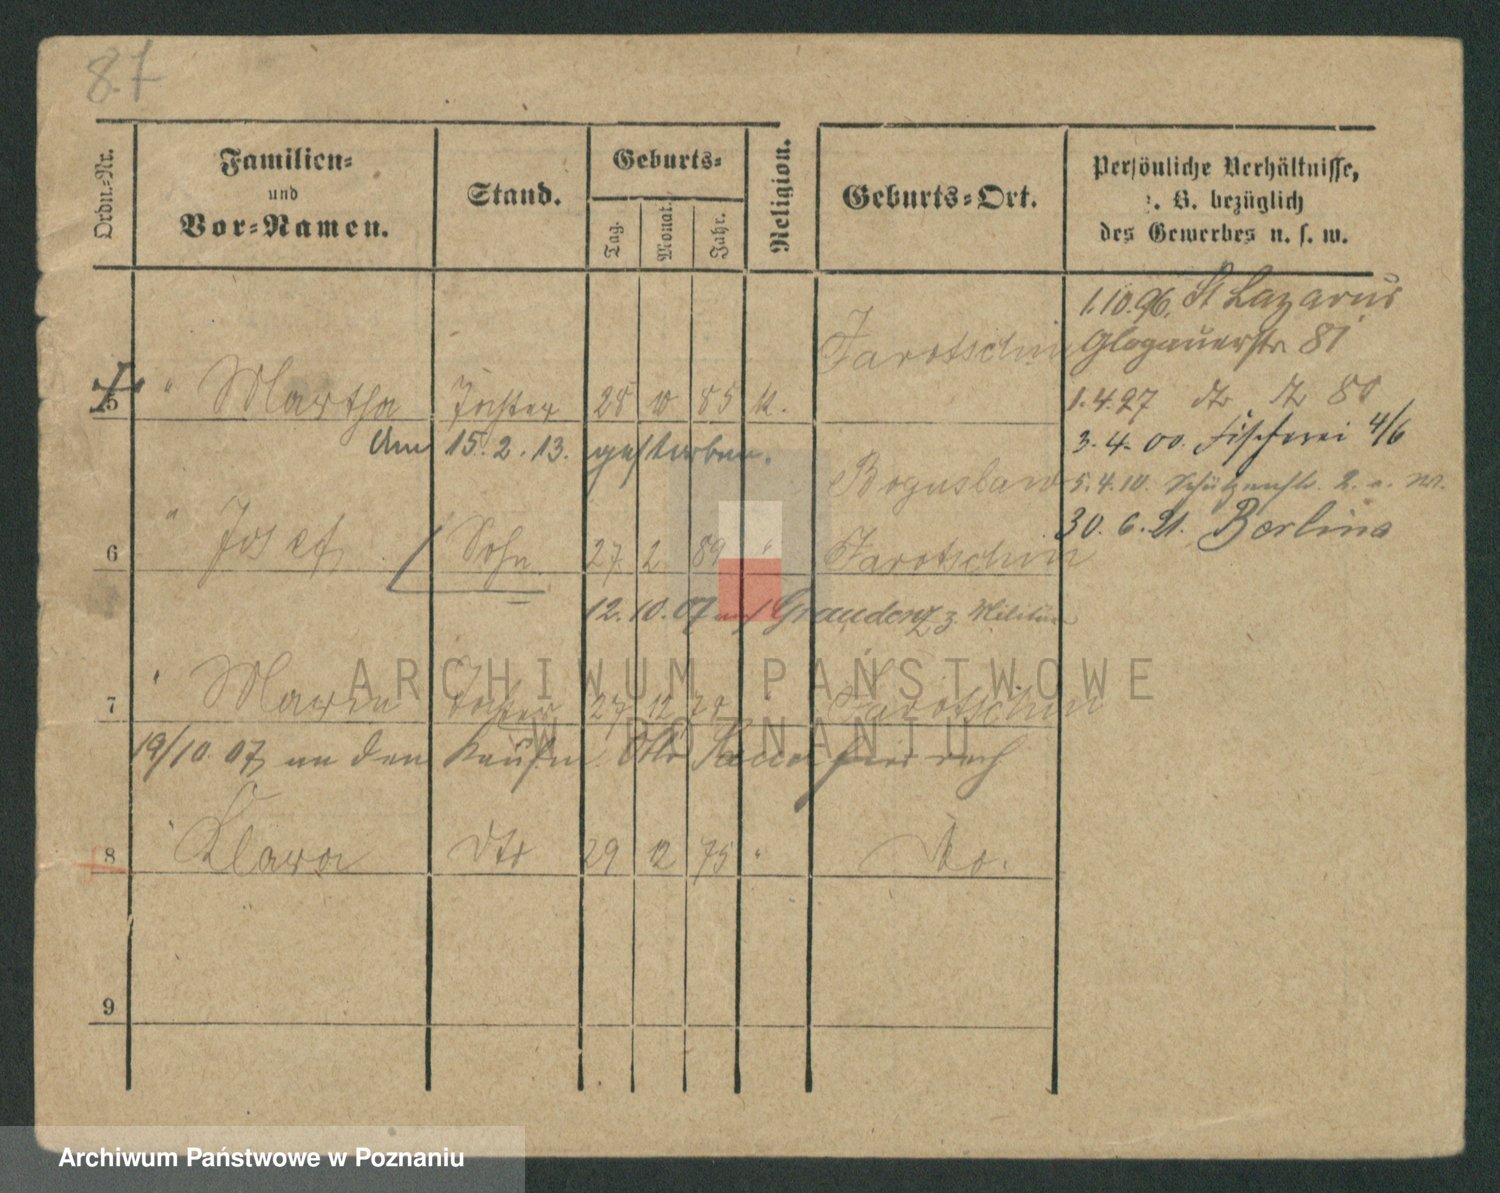 8.7
Ordn.-Nr.
Familien-
und
Vor-Namen.
Stand.
Geburts-
Tag.
Monat.
Jahr.
Religion.
Geburts-Ort.
Persönliche Verhältnisse,
z. B. bezüglich
des Gewerbes u. s. w.
1.10.96. St Lazarus
Glogauerstr 81
1.4.97 80
3.4.00. Fischerei 4/6
5.4.10. Schützenstr. 2.
30.6.21. Berlina
5 " Martha Tochter 28 10 85 k. Jarotschin
am 15.2.13. gestorben.
6 " Josef Sohn 27 2 89 " Boguslaw
Jarotschin
12.10.07 auf Graudenz z. Militär
7 " Maria Tochter 27 12 78 Jarotschin
19/10.07 an den Kaufm. Otto
8 " Klara dto 29 12 75 " do.
9
ARCHIWUM PAŃSTWOWE
W POZNANIU
Archiwum Państwowe w Poznaniu